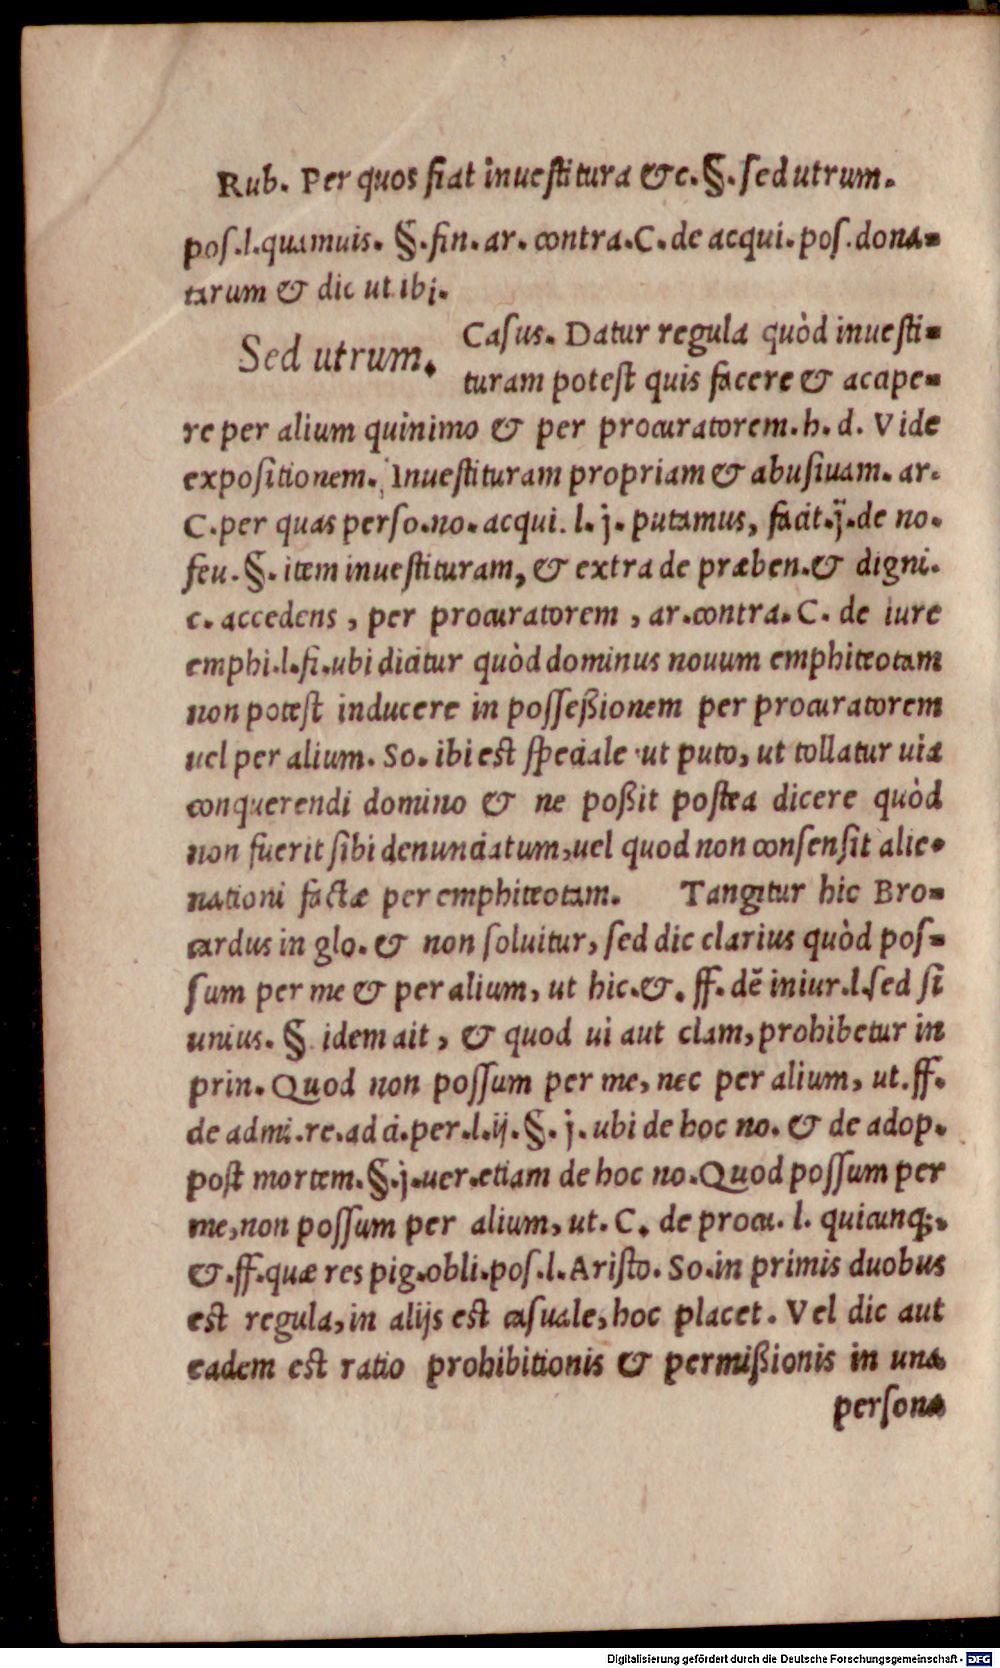 Rub. Per quos fiat inuestitura &c. §. sed utrum.
pos. l. quamuis. §. fin. ar. contra. C. de acqui. pos. dona-
tarum & dic ut ibi.
Sed utrum. Casus. Datur regula quòd inuesti-
turam potest quis facere & accipe-
re per alium quinimo & per procuratorem. h. d. Vide
expositionem. Inuestituram propriam & abusiuam. ar.
C. per quas perso. no. acqui. l. j. putamus, facit. j. de no.
feu. §. item inuestituram, & extra de præben. & digni.
c. accedens, per procuratorem, ar. contra. C. de iure
emphi. l. fi. ubi dicitur quòd dominus nouum emphiteotam
non potest inducere in posseßionem per procuratorem
uel per alium. So. ibi est speciale ut puto, ut tollatur uia
conquerendi domino & ne poßit postea dicere quòd
non fuerit sibi denunciatum, uel quod non consensit alie-
nationi factæ per emphiteotam. Tangitur hic Bro-
cardus in glo. & non soluitur, sed dic clarius quòd pos-
sum per me & per alium, ut hic. &. ff. de iniur. l. sed si
unius. § idem ait, & quod ui aut clam, prohibetur in
prin. Quod non possum per me, nec per alium, ut. ff.
de admi. re. ad ci. per. l. ij. §. j. ubi de hoc no. & de adop.
post mortem. §. j. uer. etiam de hoc no. Quod possum per
me, non possum per alium, ut. C. de procu. l. quicunq;.
&. ff. quæ res pig. obli. pos. l. Aristo. So. in primis duobus
est regula, in alijs est casuale, hoc placet. Vel dic aut
eadem est ratio prohibitionis & permißionis in una
persona
Digitalisierung gefördert durch die Deutsche Forschungsgemeinschaft - DFG